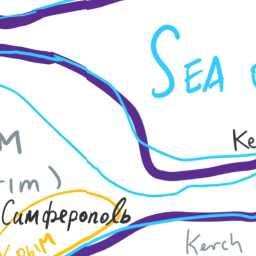 SEA
Ke
M
rim)
Симферополь
Крым
Kerch